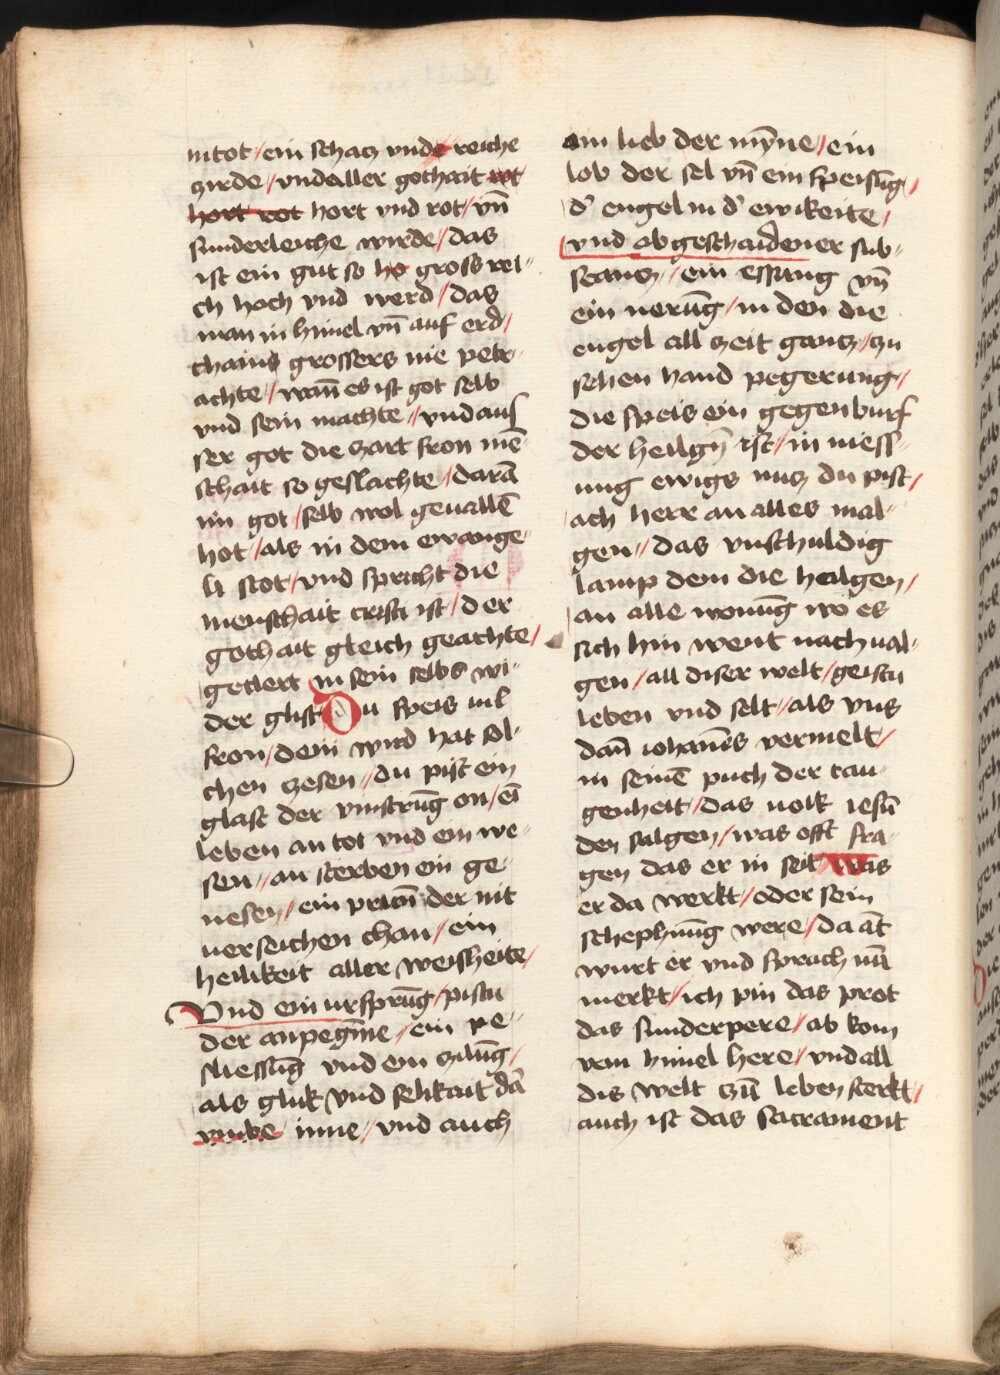 nitot / ein schacz vnde reiche
zirde / vnd aller gothait rot
hort rot hort vnd rot / vn̄
sunderleiche wirde / das
ist ein gut so ho gross rei-
ch hoch vnd werd / das
man in himel vn̄ auf erd /
chains grossers nie petr-
achte / wan̄ es ist got selb
vnd sein machte // vnd auf
ser got die zart fron mē
schait so geslachte / darā
im got / selb wol geuallē
hot / als in dem ewange-
li stot / vnd spricht die
menschait cristi ist / der
gothait gleich geachte /
geclert in sein selbs wi-
der glist Du speis vil
fron / dem wird hat sol-
chen zesen // du pist ein
glast der vinstrūg on / eī
leben an tot vnd ein we-
sen // an sterben ein ge-
nesen / ein prun̄ der nit
verseichen chan / ein
heilikeit aller weisheite /
Vnd ein vrsprūg / pistu
der anpegīne // ein pe-
sliessūg vnd ein zilūg /
als gluk vnd selikait dā
vmbe inne // vnd auch
am lieb der mȳne / ein
lob der sel vn̄ ein speisūg /
d' engel in d' ewikeite /
vnd abgeschaidener sub-
stancz // ein essung vn̄
ein nerūg / in den die
engel all zeit gancz / zu
sehen hand pegerung /
die speis ein gegenburf
der heilgn̄ ist / in niess-
ung ewigs nucz du pist /
ach herr an alles mal-
gen // das vnschuldig
lamp dem die heilgen /
an alle wonūg wo es
sich hin went nachual-
gen / all diser welt / geistu
leben vnd selt / als vns
dan̄ iohan̄es vermelt /
in seinē puch der tau-
genheit / das uolk iesū
den salgen / was offt fra-
gen das er in seit was
er da werkt / oder sein
schephnūg were / da āt
wurt er vnd sprach nū
merkt / ich pin das prot
das sunderpere / ab kom
vom himel here / vnd all
dis welt zū leben sterkt /
auch ist das sacrament